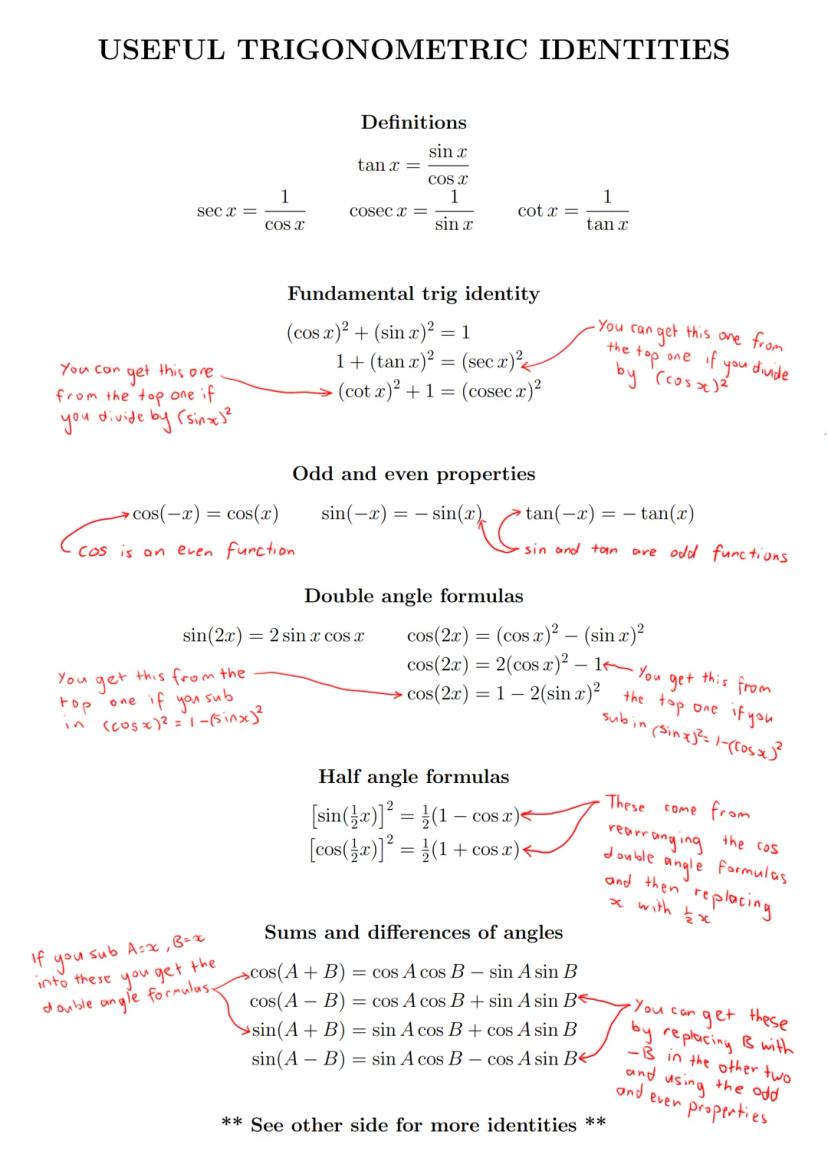 USEFUL TRIGONOMETRIC IDENTITIES
Definitions
tan x = sin x / cos x
sec x = 1 / cos x    cosec x = 1 / sin x    cot x = 1 / tan x
Fundamental trig identity
(cos x)² + (sin x)² = 1
1 + (tan x)² = (sec x)²
(cot x)² + 1 = (cosec x)²
You can get this one
from the top one if
you divide by (sinx)²
You can get this one from
the top one if you divide
by (cos x)²
Odd and even properties
cos(−x) = cos(x)    sin(−x) = − sin(x)    tan(−x) = − tan(x)
cos is an even function
sin and tan are odd functions
Double angle formulas
sin(2x) = 2 sin x cos x    cos(2x) = (cos x)² − (sin x)²
cos(2x) = 2(cos x)² − 1
cos(2x) = 1 − 2(sin x)²
You get this from the
top one if you sub
in (cosx)² = 1-(sinx)²
You get this from
the top one if you
sub in (sinx)² = 1-(cosx)²
Half angle formulas
[sin(½x)]² = ½(1 − cos x)
[cos(½x)]² = ½(1 + cos x)
These come from
rearranging the cos
double angle formulas
and then replacing
x with ½x
Sums and differences of angles
If you sub A=x, B=x
into these you get the
double angle formulas
cos(A + B) = cos A cos B − sin A sin B
cos(A − B) = cos A cos B + sin A sin B
sin(A + B) = sin A cos B + cos A sin B
sin(A − B) = sin A cos B − cos A sin B
You can get these
by replacing B with
-B in the other two
and using the odd
and even properties
** See other side for more identities **